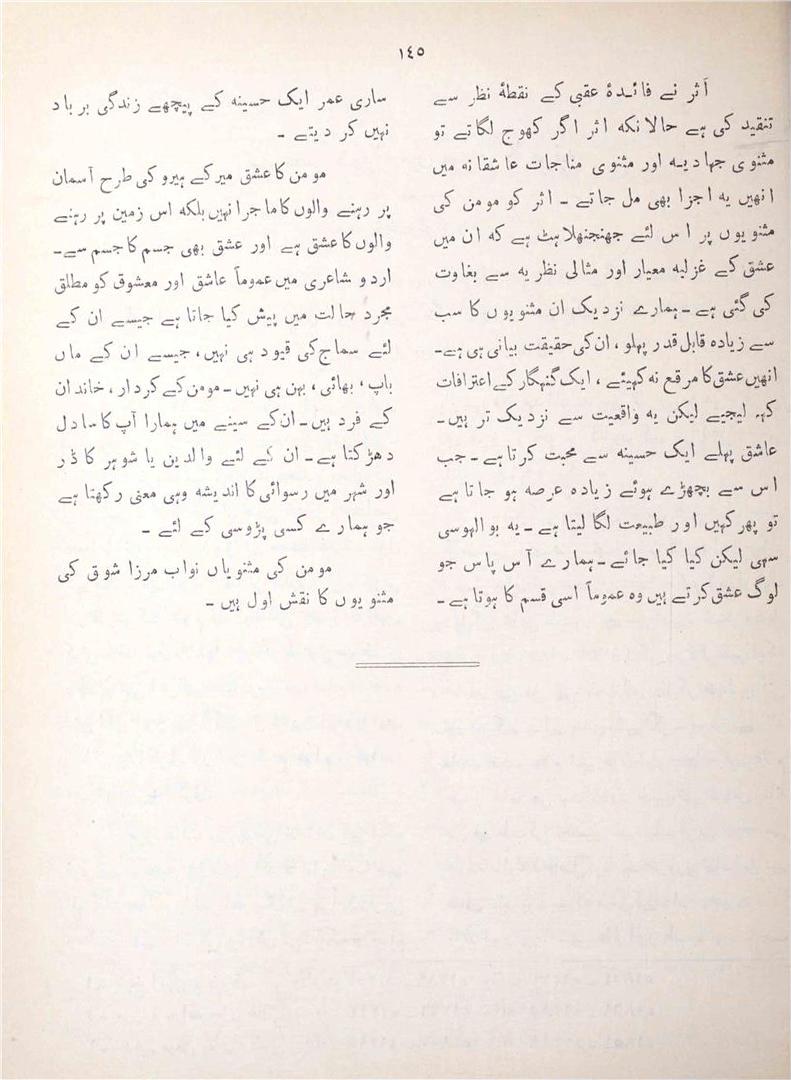 ١٤٥
اَثر نے فائدۂ عقبی کے نقطۂ نظر سے
تنقید کی ہے حالانکہ اثر اگر کھوج لگاتے تو
مثنوی جہادیہ اور مثنوی مناجات عاشقانہ میں
انھیں یہ اجزا بھی مل جاتے ۔ اثر کو مومن کی
مثنویوں پر اس لئے جھنجھلاہٹ ہے کہ ان میں
عشق کے غزلیہ معیار اور مثالی نظریہ سے بغاوت
کی گئی ہے ۔ ہمارے نزدیک ان مثنویوں کا سب
سے زیادہ قابل قدر پہلو ، ان کی حقیقت بیانی ہی ہے۔
انھیں عشق کا مرقع نہ کہیئے ، ایک گنہگار کے اعترافات
کہہ لیجیے لیکن یہ واقعیت سے نزدیک تر ہیں۔
عاشق پہلے ایک حسینہ سے محبت کرتا ہے ۔ جب
اس سے بچھڑے ہوئے زیادہ عرصہ ہو جاتا ہے
تو پھر کہیں اور طبیعت لگا لیتا ہے ۔ یہ بوالہوسی
سہی لیکن کیا کیا جائے ۔ ہمارے آس پاس جو
لوگ عشق کرتے ہیں وہ عموماً اسی قسم کا ہوتا ہے ۔
ساری عمر ایک حسینہ کے پیچھے زندگی برباد
نہیں کر دیتے ۔
مومن کا عشق میر کے ہیرو کی طرح آسمان
پر رہنے والوں کا ماجرا نہیں بلکہ اس زمین پر رہنے
والوں کا عشق ہے اور عشق بھی جسم کا جسم سے۔
اردو شاعری میں عموماً عاشق اور معشوق کو مطلق
مجرد حالت میں پیش کیا جاتا ہے جیسے ان کے
لئے سماج کی قیود ہی نہیں ، جیسے ان کے ماں
باپ ، بھائی ، بہن ہی نہیں ۔ مومن کے کردار ، خاندان
کے فرد ہیں ۔ ان کے سینے میں ہمارا آپ کا سا دل
دھڑکتا ہے ۔ ان کے لئے والدین یا شوہر کا ڈر
اور شہر میں رسوائی کا اندیشہ وہی معنی رکھتا ہے
جو ہمارے کسی پڑوسی کے لئے ۔
مومن کی مثنویاں نواب مرزا شوق کی
مثنویوں کا نقش اول ہیں ۔